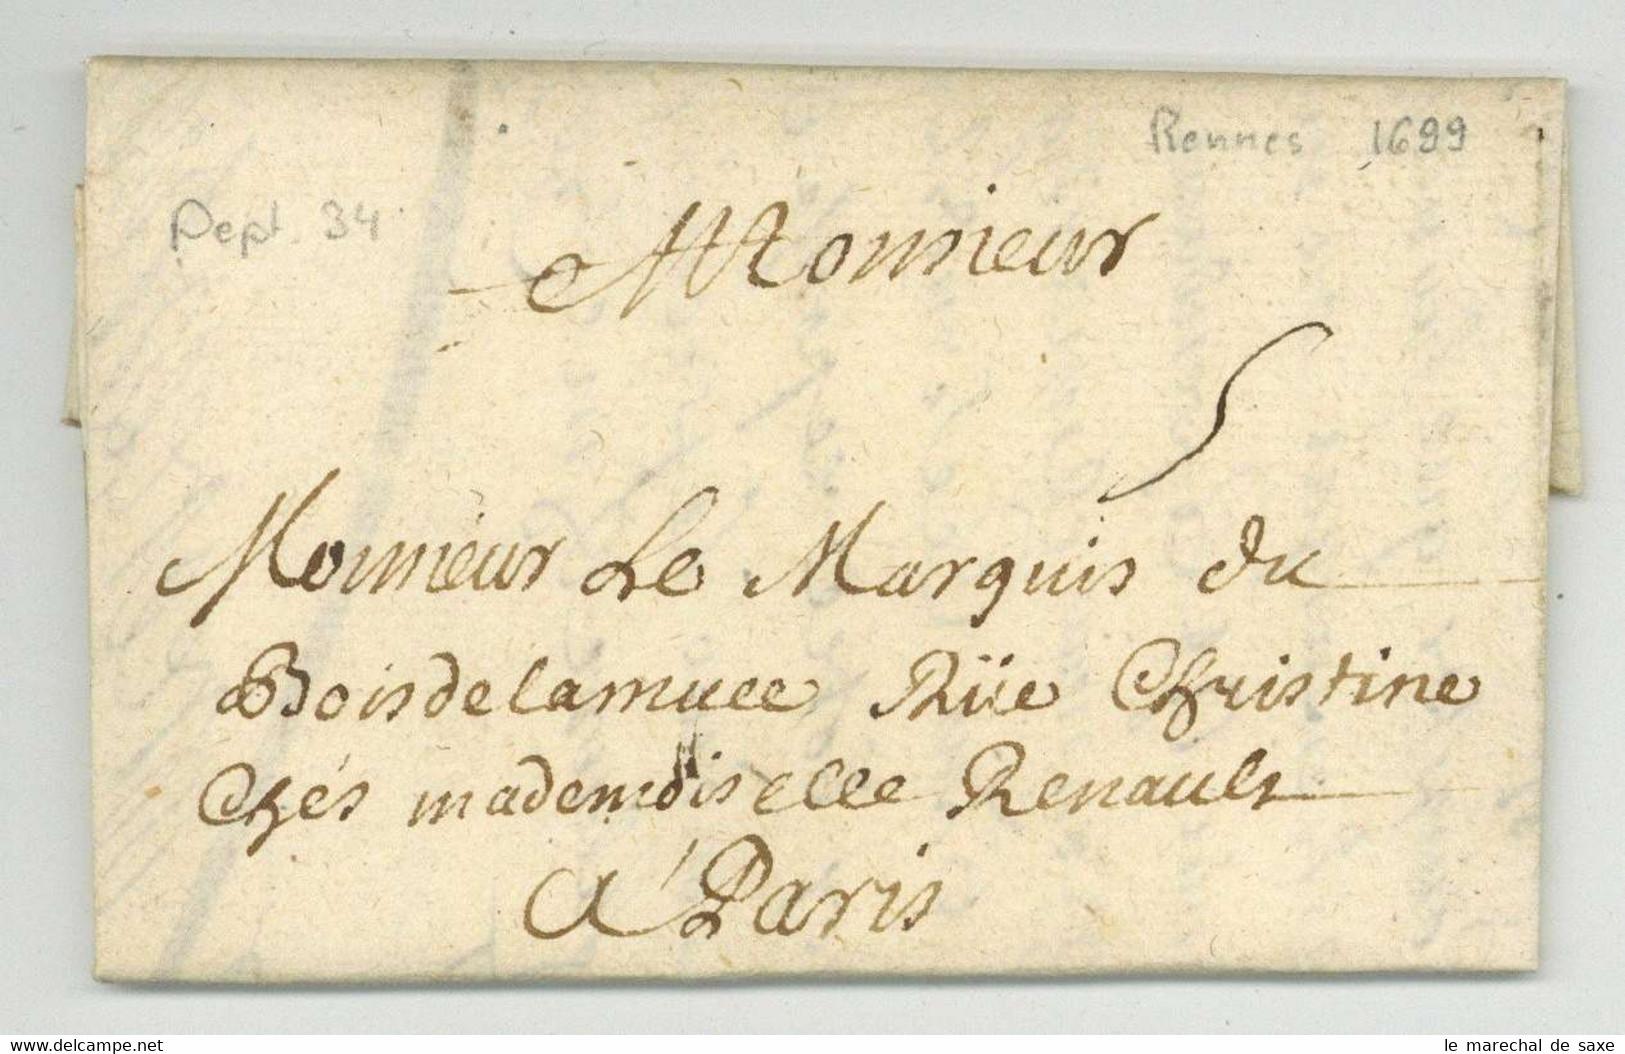 Rennes 1699
Dept. 34
Monsieur
5
Monsieur Le Marquis du
Boisdelamuce Rüe Christine
Chés mademoiselle Renault
A Paris
www.delcampe.net
le marechal de saxe